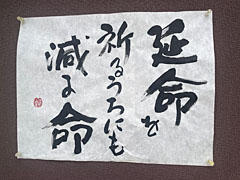 延命を
祈るうちにも
減る命